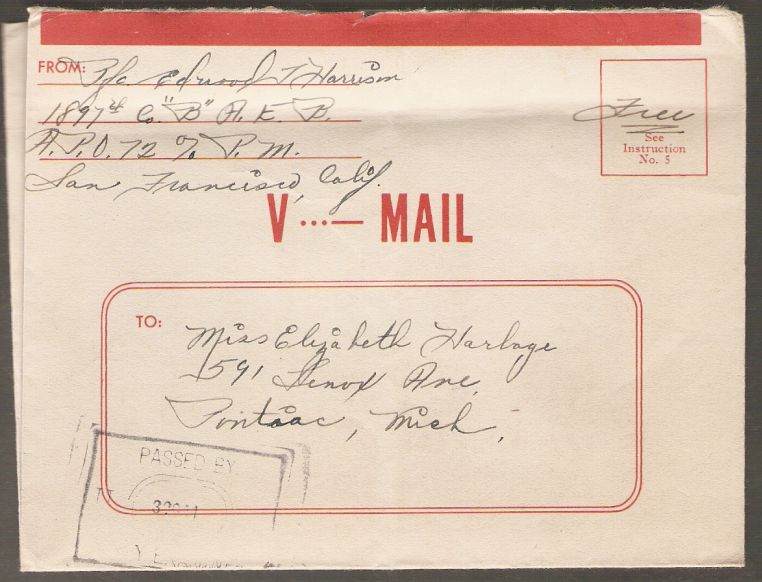 FROM: Pfc. Edwood T Harrison
1897th Co. "B" A. E. B.
A. P. O. 72 % P. M.
San Francisco, Calif.
Free
See
Instruction
No. 5
V ···— MAIL
TO:
Miss Elizabeth Harbage
591 Lenox Ave.
Pontiac, Mich.
PASSED BY